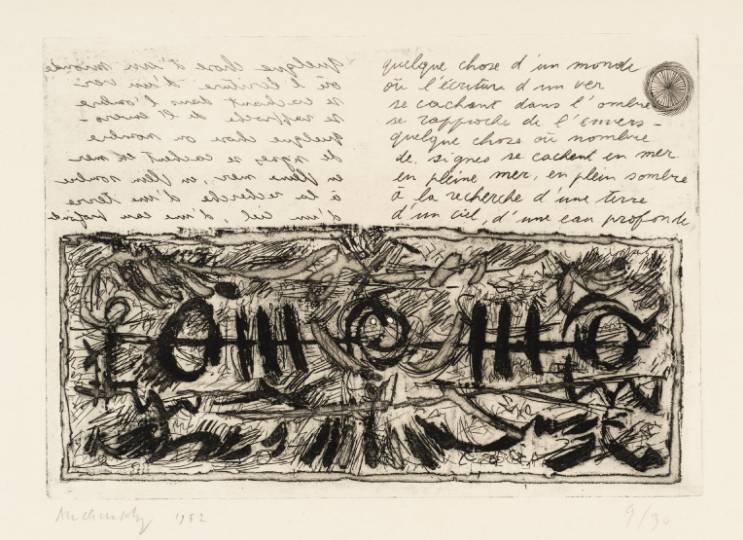 quelque chose d'un monde
où l'écriture d'un ver
se cachant dans l'ombre
se rapproche de l'envers -
quelque chose ou nombre
de signes se cachent en mer
en pleine mer, en plein sombre
à la recherche d'une terre
d'un ciel, d'une eau profonde
quelque chose d'un monde
où l'écriture d'un ver
se cachant dans l'ombre
se rapproche de l'envers -
quelque chose où nombre
de signes se cachent en mer
en pleine mer, en plein sombre
à la recherche d'une terre
d'un ciel, d'une eau profonde
9/30